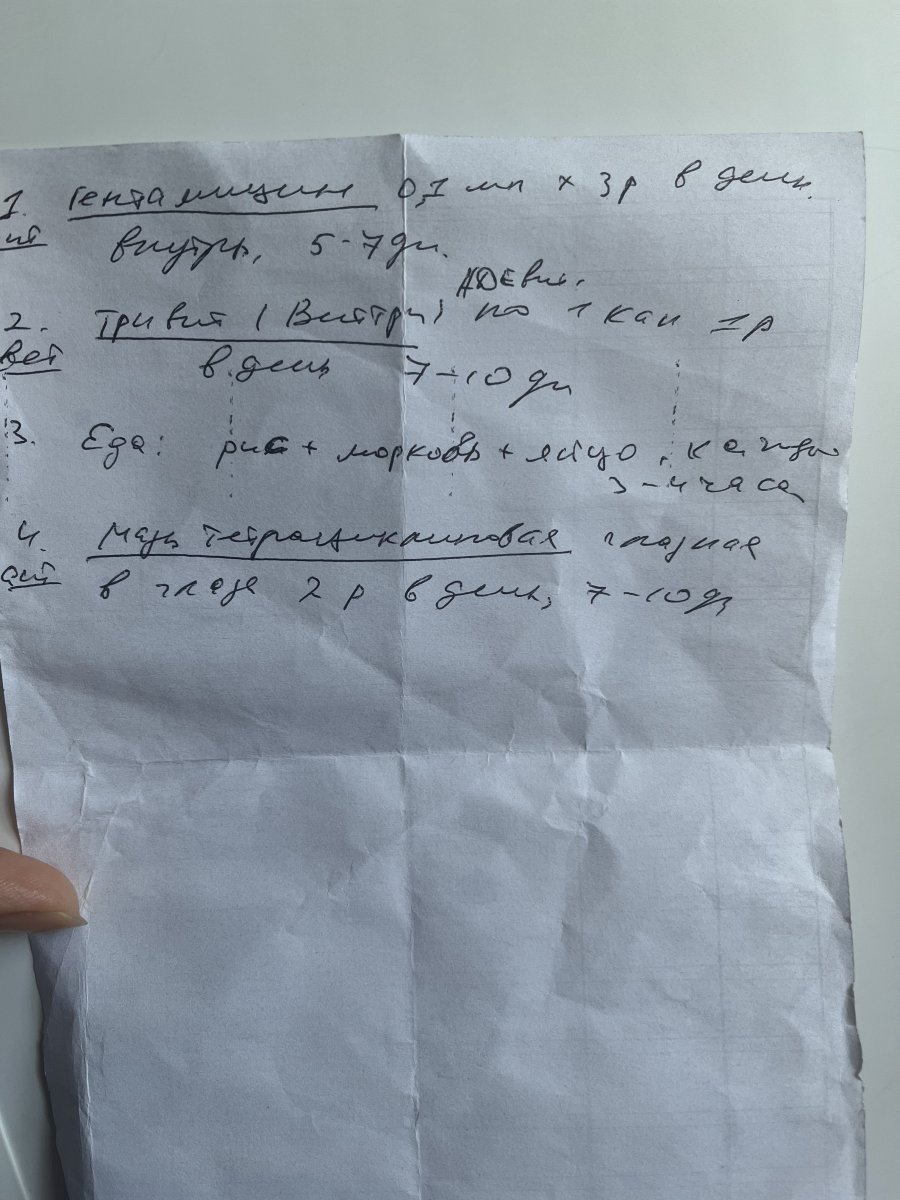 1. Гентамицин 0,1 мл х 3 р в день.
внутрь, 5-7 дн.
АДЕвит.
2. Тривит (Витри) по 1 кап 1 р
вет в день 7-10 дн
3. Еда: рис + морковь + яйцо, каждые
3-4 часа
4. Мазь тетрациклиновая глазная
в глаза 2 р в день, 7-10 дн